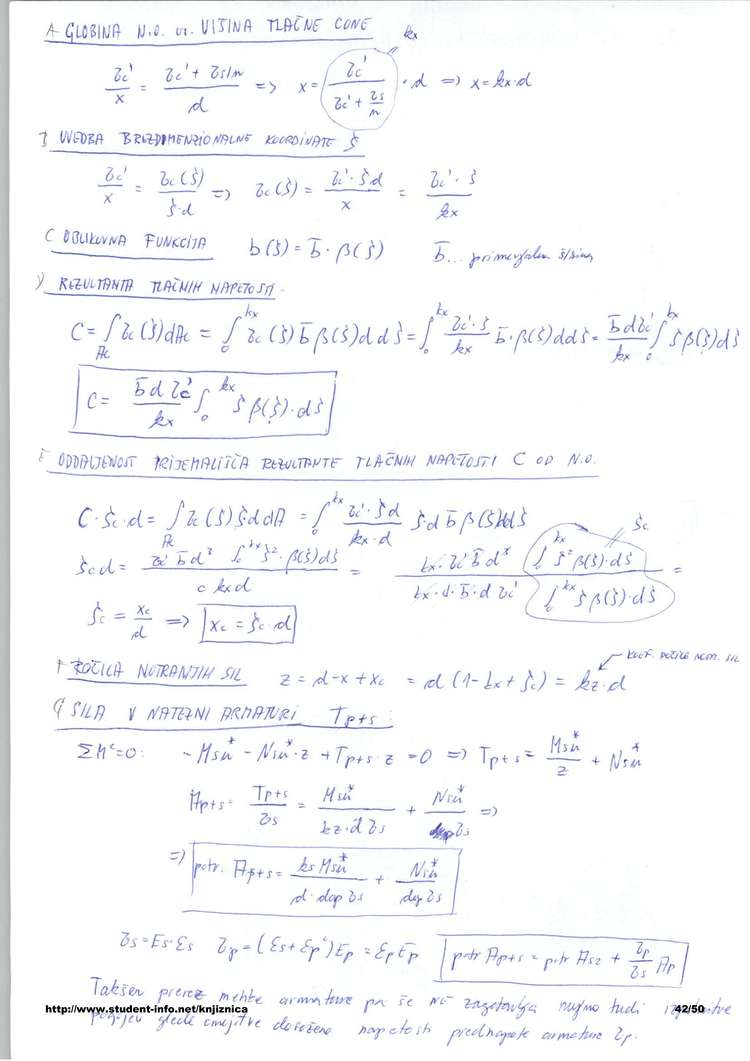 A GLOBINA N.O. oz. VIŠINA TLAČNE CONE
kx
σc'/x = (σc' + σs/n)/d => x = σc'/(σc' + σs/n) · d => x = kx·d
B UVEDBA BREZDIMENZIONALNE KOORDINATE ξ
σc'/x = σc(ξ)/(ξ·d) => σc(ξ) = (σc'·ξd)/x = (σc'·ξ)/kx
C OBLIKOVNA FUNKCIJA b(ξ) = b̄·β(ξ) b̄... primerjalna širina
D REZULTANTA TLAČNIH NAPETOSTI
C = ∫Ac σc(ξ)dAc = ∫0^kx σc(ξ) b̄ β(ξ) d dξ = ∫0^kx (σc'·ξ)/kx b̄·β(ξ) d dξ = (b̄ d σc')/kx ∫0^kx ξ β(ξ) dξ
C = (b̄ d σc')/kx ∫0^kx ξ β(ξ)·dξ
E ODDALJENOST PRIJEMALIŠČA REZULTANTE TLAČNIH NAPETOSTI C OD N.O.
C·ξc·d = ∫Ac σc(ξ) ξ d dA = ∫0^kx (σc'·ξ d)/(kx·d) ξ d b̄ β(ξ) d dξ
ξc
ξc d = (σc' b̄ d³ ∫0^kx ξ²·β(ξ) dξ)/(c kx d) = (kx·σc' b̄ d³ ∫0^kx ξ² β(ξ)·dξ)/(kx·d·b̄·d σc' ∫0^kx ξ β(ξ)·dξ) =
ξc = xc/d => xc = ξc·d
F ROČICA NOTRANJIH SIL z = d - x + xc = d (1 - kx + ξc) = kz·d
KOEF. ROČICE NOTR. SIL
G SILA V NATEZNI ARMATURI Tp+s:
ΣM^c=0: - Msu* - Nsu*·z + Tp+s·z = 0 => Tp+s = Msu*/z + Nsu*
Ap+s = Tp+s/σs = Msu*/(kz·d σs) + Nsu*/σs =>
=> potr. Ap+s = (ks Msu*)/(d·dop σs) + Nsu*/(dop σs)
σs = Es·εs σp = (εs + εp°)Ep = εp Ep potr Ap+s = potr As2 + σp/σs Ap
Takšen prerez mehke armature pa še ne zagotavlja nujno tudi izpolnitve
http://www.student-info.net/knjiznica 42/50
pogojev glede omejitve dosežene napetosti prednapete armature σp.